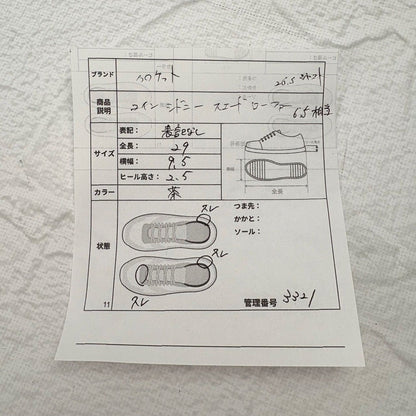 ブランド クロケット
商品説明 コイン シドニー スエード ローファー 6.5相当
サイズ
表記： 表記なし
全長： 29
横幅： 9.5
ヒール高さ： 2.5
カラー 茶
横幅
全長
状態
スレ
スレ
スレ
つま先：
かかと：
ソール：
11
管理番号 3321